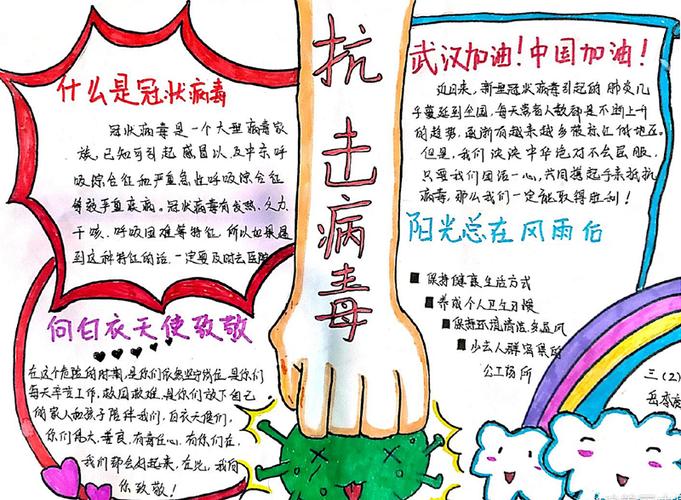 什么是冠状病毒
冠状病毒是一个大型病毒家
族,已知可引起感冒以及中东呼
吸综合征和严重急性呼吸综合征
等较严重疾病。冠状病毒有发热、乏力、
干咳、呼吸困难等特征,所以如果遇
到这种特征的话,一定要及时去医院
向白衣天使致敬
在这个危险的时期,是你们依然坚守岗位,是你们
每天辛苦工作,救国救难,是你们放下自己
的家人和孩子陪伴我们,白衣天使们,
你们伟大、善良、有责任心,有你们在,
我们都会好起来,在此,我向
你致敬!
抗击病毒
武汉加油!中国加油!
近日来,新型冠状病毒引起的肺炎几
乎蔓延到全国,每天患者人数都是不断上升
的趋势,逐渐有越来越多被标红的地区。
但是,我们泱泱中华绝对不会屈服,
只要我们团结一心,共同携起手来抵抗
病毒,那么我们一定能取得胜利!
阳光总在风雨后
保持健康生活方式
养成个人卫生习惯
保持环境清洁多通风
少去人群密集的
公共场所
三(2)